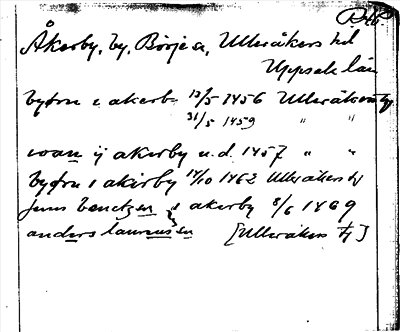 Åkerby, by, Börje s., Ulleråkers hd
Uppsala län
byørn i akerb 13/5 1456 Ulleråkers tj
31/5 1459 " "
ioan ij akerby u.d. 1457 " "
byørn i akirby 14/10 1462 Ulleråkers tj
jenis benctzen i akerby 8/6 1469
anders laurensen [Ulleråkers tj]